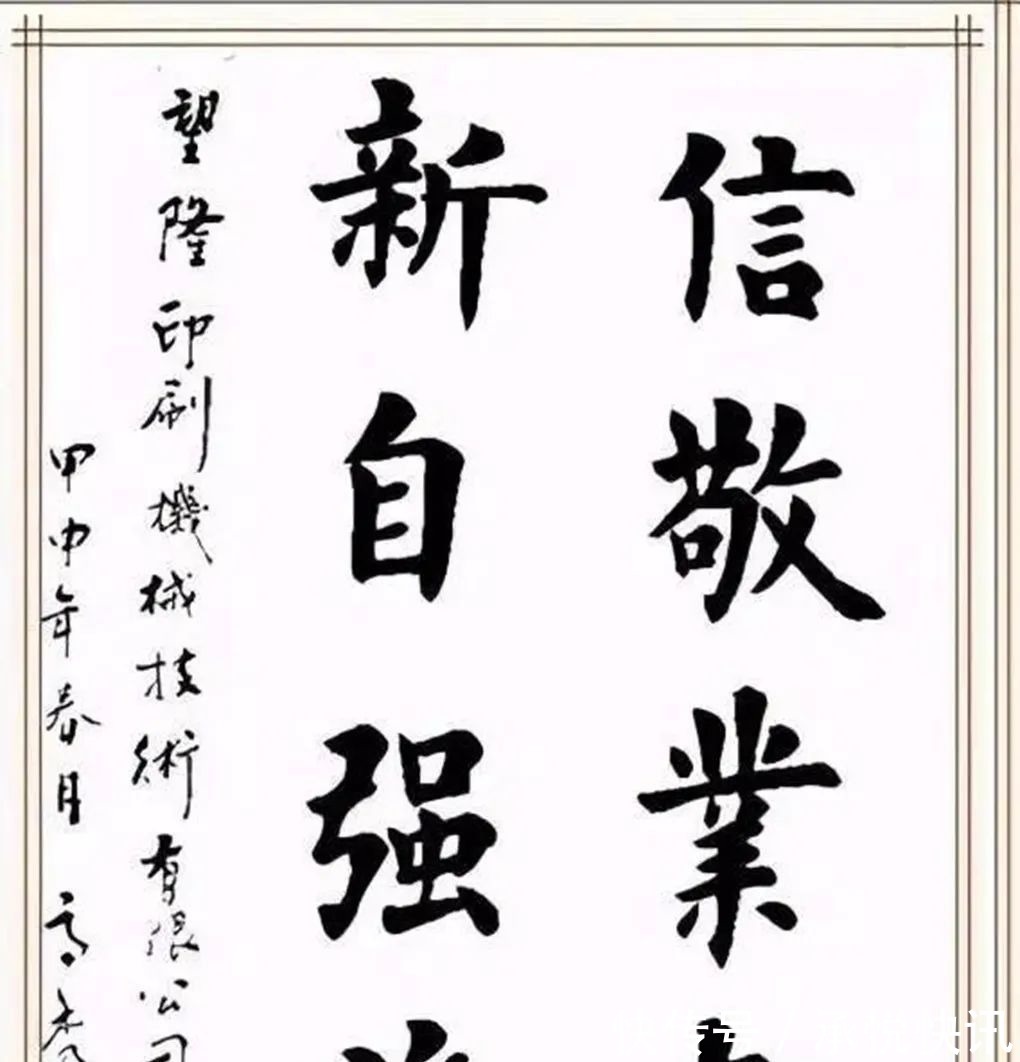 信敬業
新自强
望隆印刷機械技術有限公司
甲申年春月高
快讯